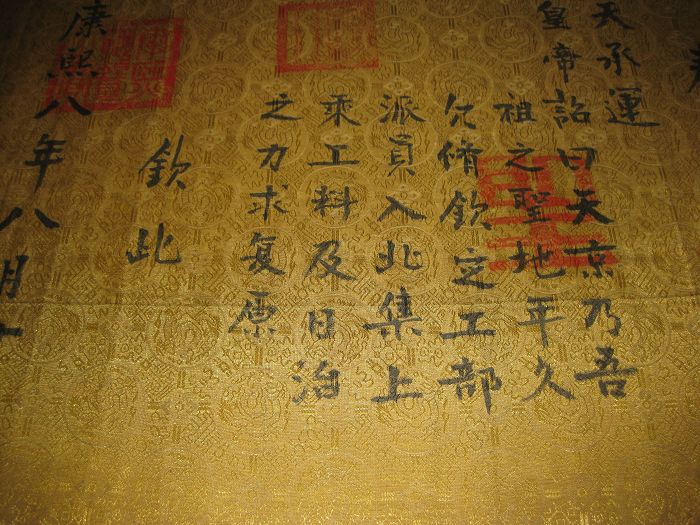 天承運
皇帝詔曰天京乃吾
祖之聖地年久
允脩欽定工部
派員入北集上
乘工料及日治
之力求复原
欽此
康熙八年八月